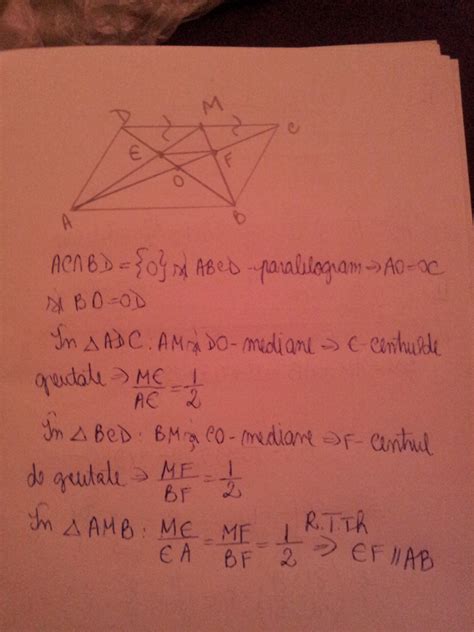 D M C
E F
O
A B
AC∩BD={O} și ABCD-paralelogram ⇒ AO=OC
și BO=OD
În △ADC: AM și DO-mediane ⇒ E-centrul de
greutate ⇒ ME/AE = 1/2
În △BCD: BM și CO-mediane ⇒ F-centrul
de greutate ⇒ MF/BF = 1/2
În △AMB: ME/EA = MF/BF = 1/2 R.T.Th ⇒ EF∥AB